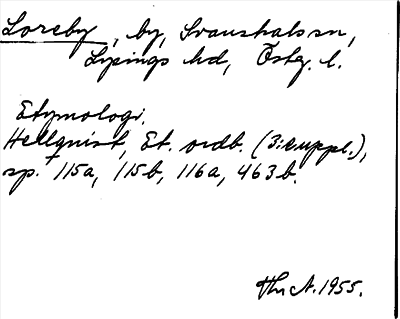 Loreby, by, Svanshals sn,
Lysings hd, Östg. l.
Etymologi.
Hellquist, Et. ordb. (3:e uppl.),
sp. 115a, 115b, 116a, 463b.
A. 1955.